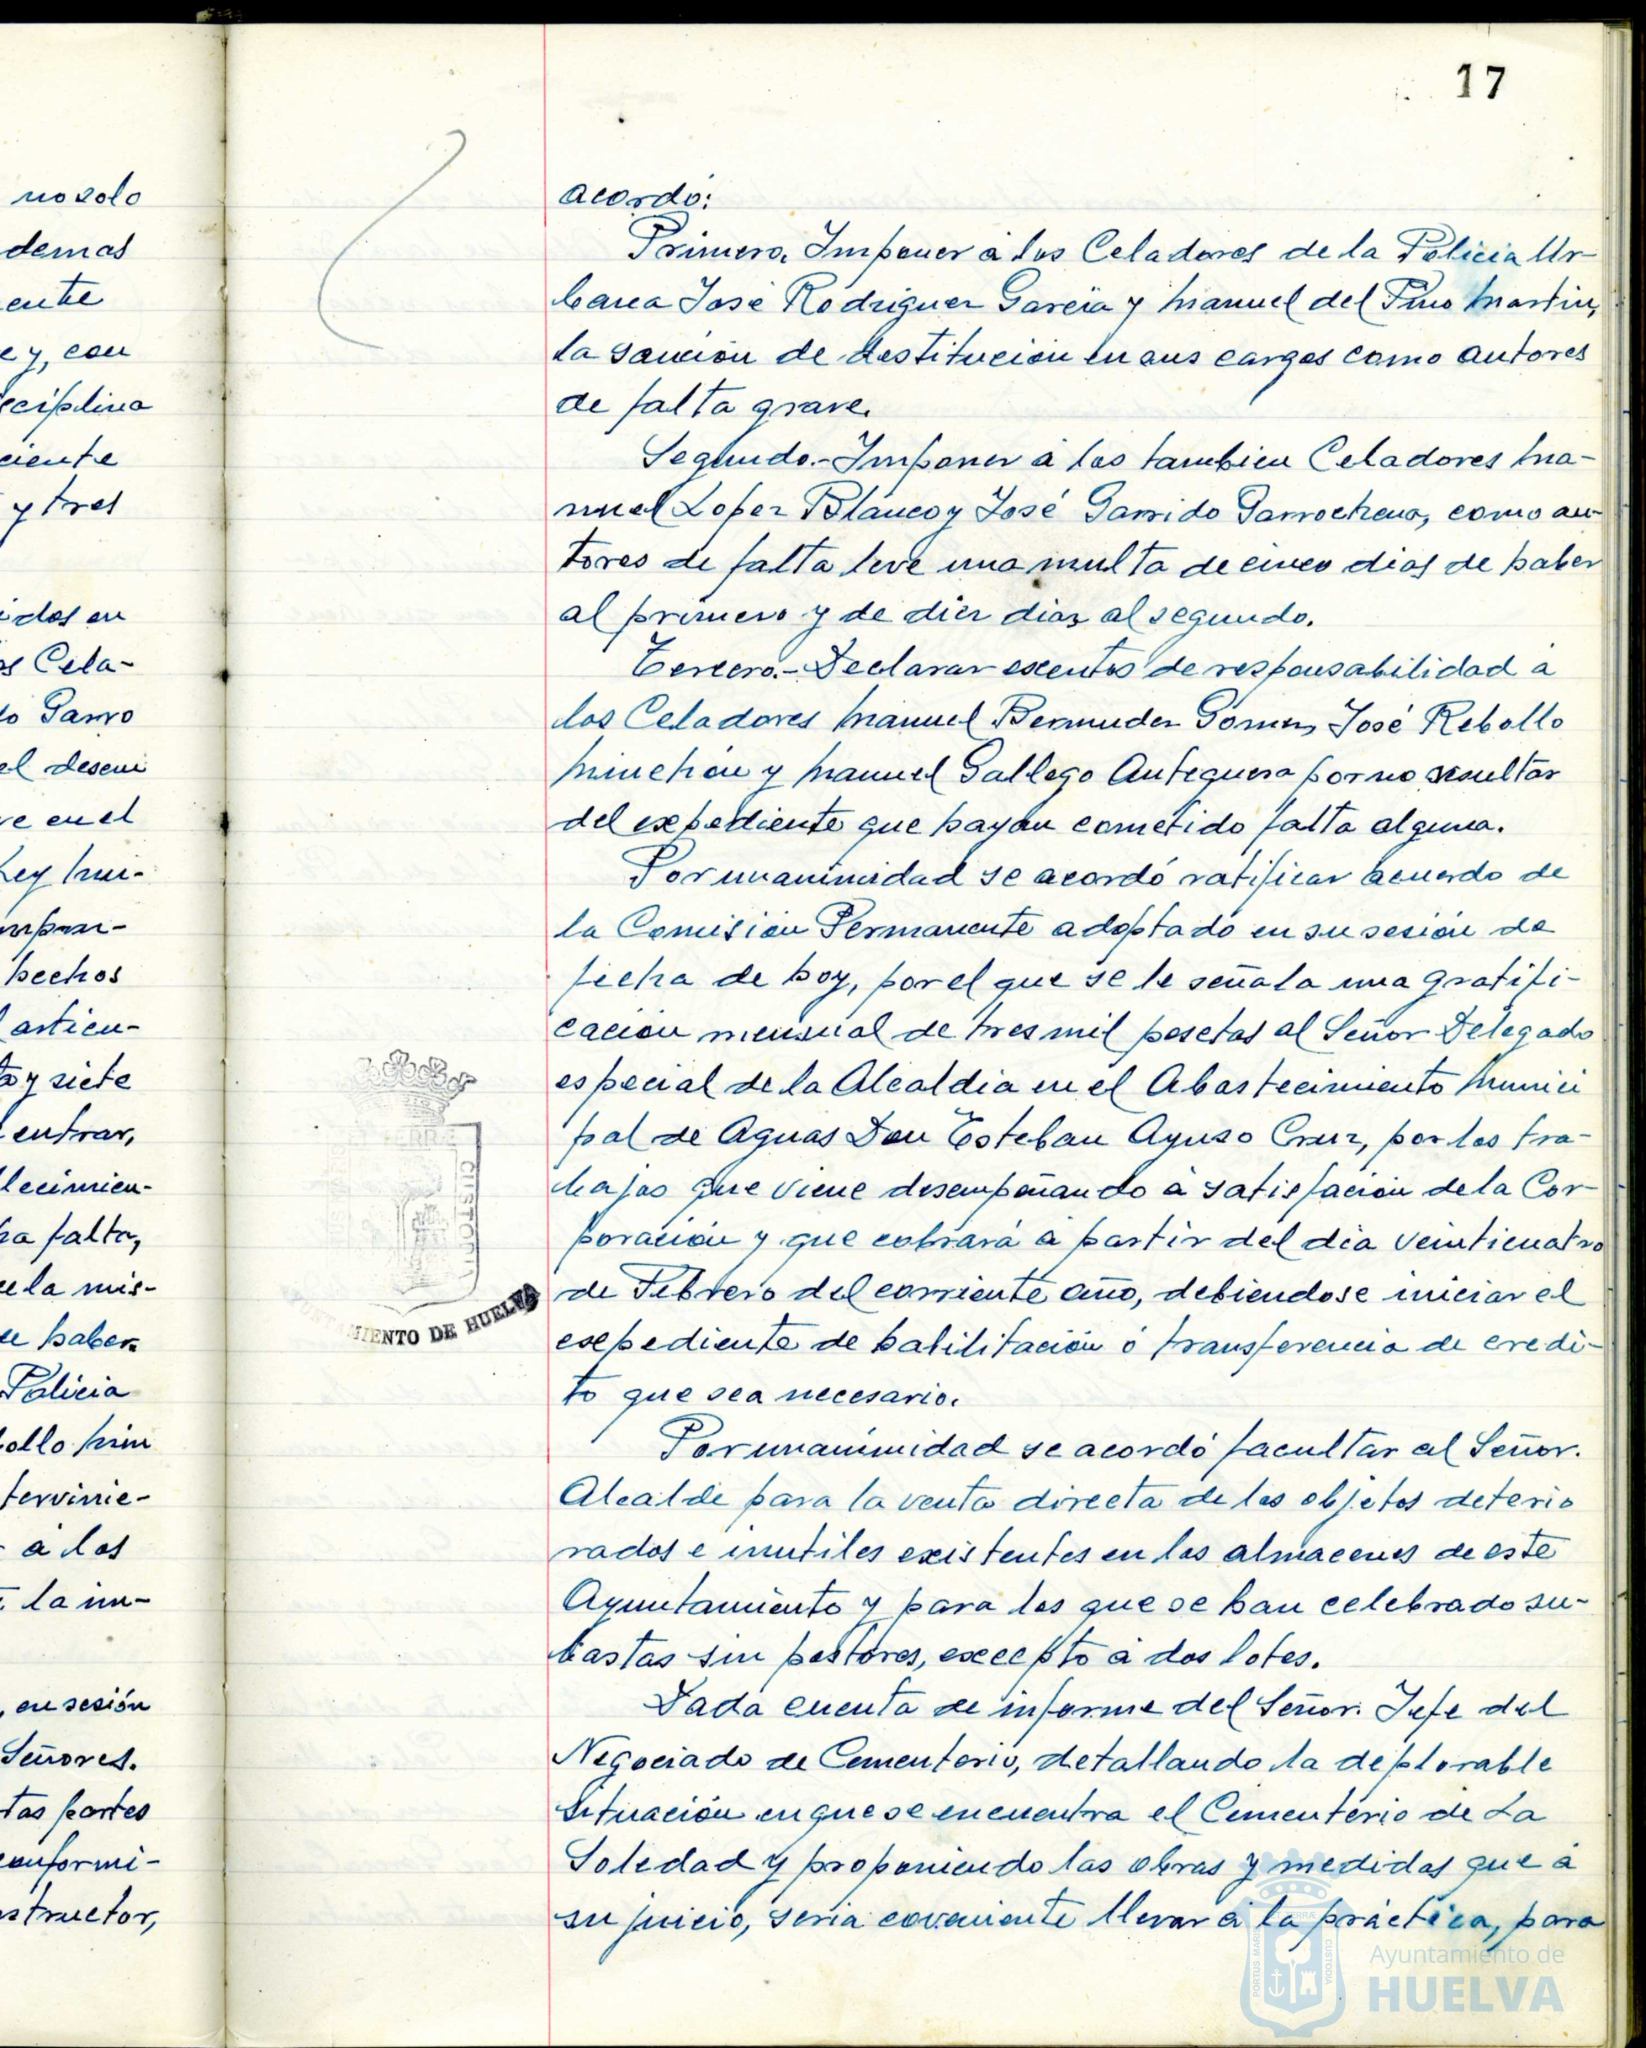 17
no solo
demas
ente
e y, con
sciplina
ciente
y tres
idos en
os Cela-
do Garro
el desem
ve en el
Ley Mu-
mpon-
hechos
l articu-
ta y siete
entrar,
lecimien-
ha falta,
de la mis-
de haber.
Policia
bollo Min
tervinie-
r á los
la im-
, en sesión
Señores.
tas partes
conformi-
structor,
acordó:
Primero. Imponer á los Celadores de la Policia Ur-
bana José Rodriguez Garcia y Manuel del Pino Martin,
la sanción de destitución en sus cargos como autores
de falta grave.
Segundo.- Imponer á los tambien Celadores Ma-
nuel Lopez Blanco y José Garrido Garrochena, como au-
tores de falta leve una multa de cinco dias de haber
al primero y de diez dias al segundo.
Tercero.- Declarar exentos de responsabilidad á
los Celadores Manuel Bermudez Gomez, José Rebollo
Minchón y Manuel Gallego Antequera por no resultar
del expediente que hayan cometido falta alguna.
Por unanimidad se acordó ratificar acuerdo de
la Comisión Permanente adoptado en su sesión de
fecha de hoy, por el que se le señala una gratifi-
cación mensual de tres mil pesetas al Señor Delegado
especial de la Alcaldia en el Abastecimiento Munici
pal de Aguas Don Esteban Ayuso Cruz, por los tra-
bajos que viene desempeñando á satisfación de la Cor-
poración y que cobrará á partir del dia veinticuatro
de Febrero del corriente año, debiendose iniciar el
expediente de habilitación ó transferencia de credi-
to que sea necesario.
Por unanimidad se acordó facultar al Señor.
Alcalde para la venta directa de los objetos deterio
rados e inutiles existentes en los almacenes de este
Ayuntamiento y para los que se han celebrado su-
bastas sin postores, excepto á dos lotes.
Dada cuenta de informe del Señor. Jefe del
Negociado de Cementerio, detallando la deplorable
situación en que se encuentra el Cementerio de La
Soledad y proponiendo las obras y medidas que á
su juicio, seria coveniente llevar á la práctica, para
TERRÆ
CUSTODIA
MIENTO DE HUELVA
PORTUS MARIS
CUSTODIA
Ayuntamiento de
HUELVA